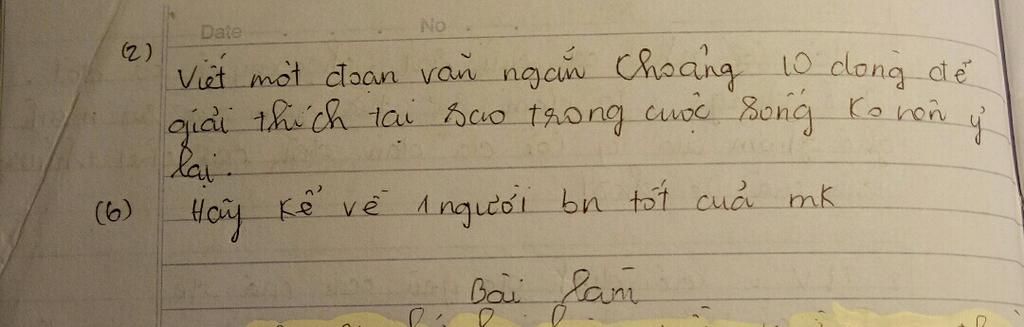 Date . . . No . .
(2) Viết một đoạn văn ngắn Choảng 10 dòng để
giải thích tại sao trong cuộc sống Ko nên ỷ
lại.
(6) Hãy kể về 1 người bn tốt cuả mk
Bài làm